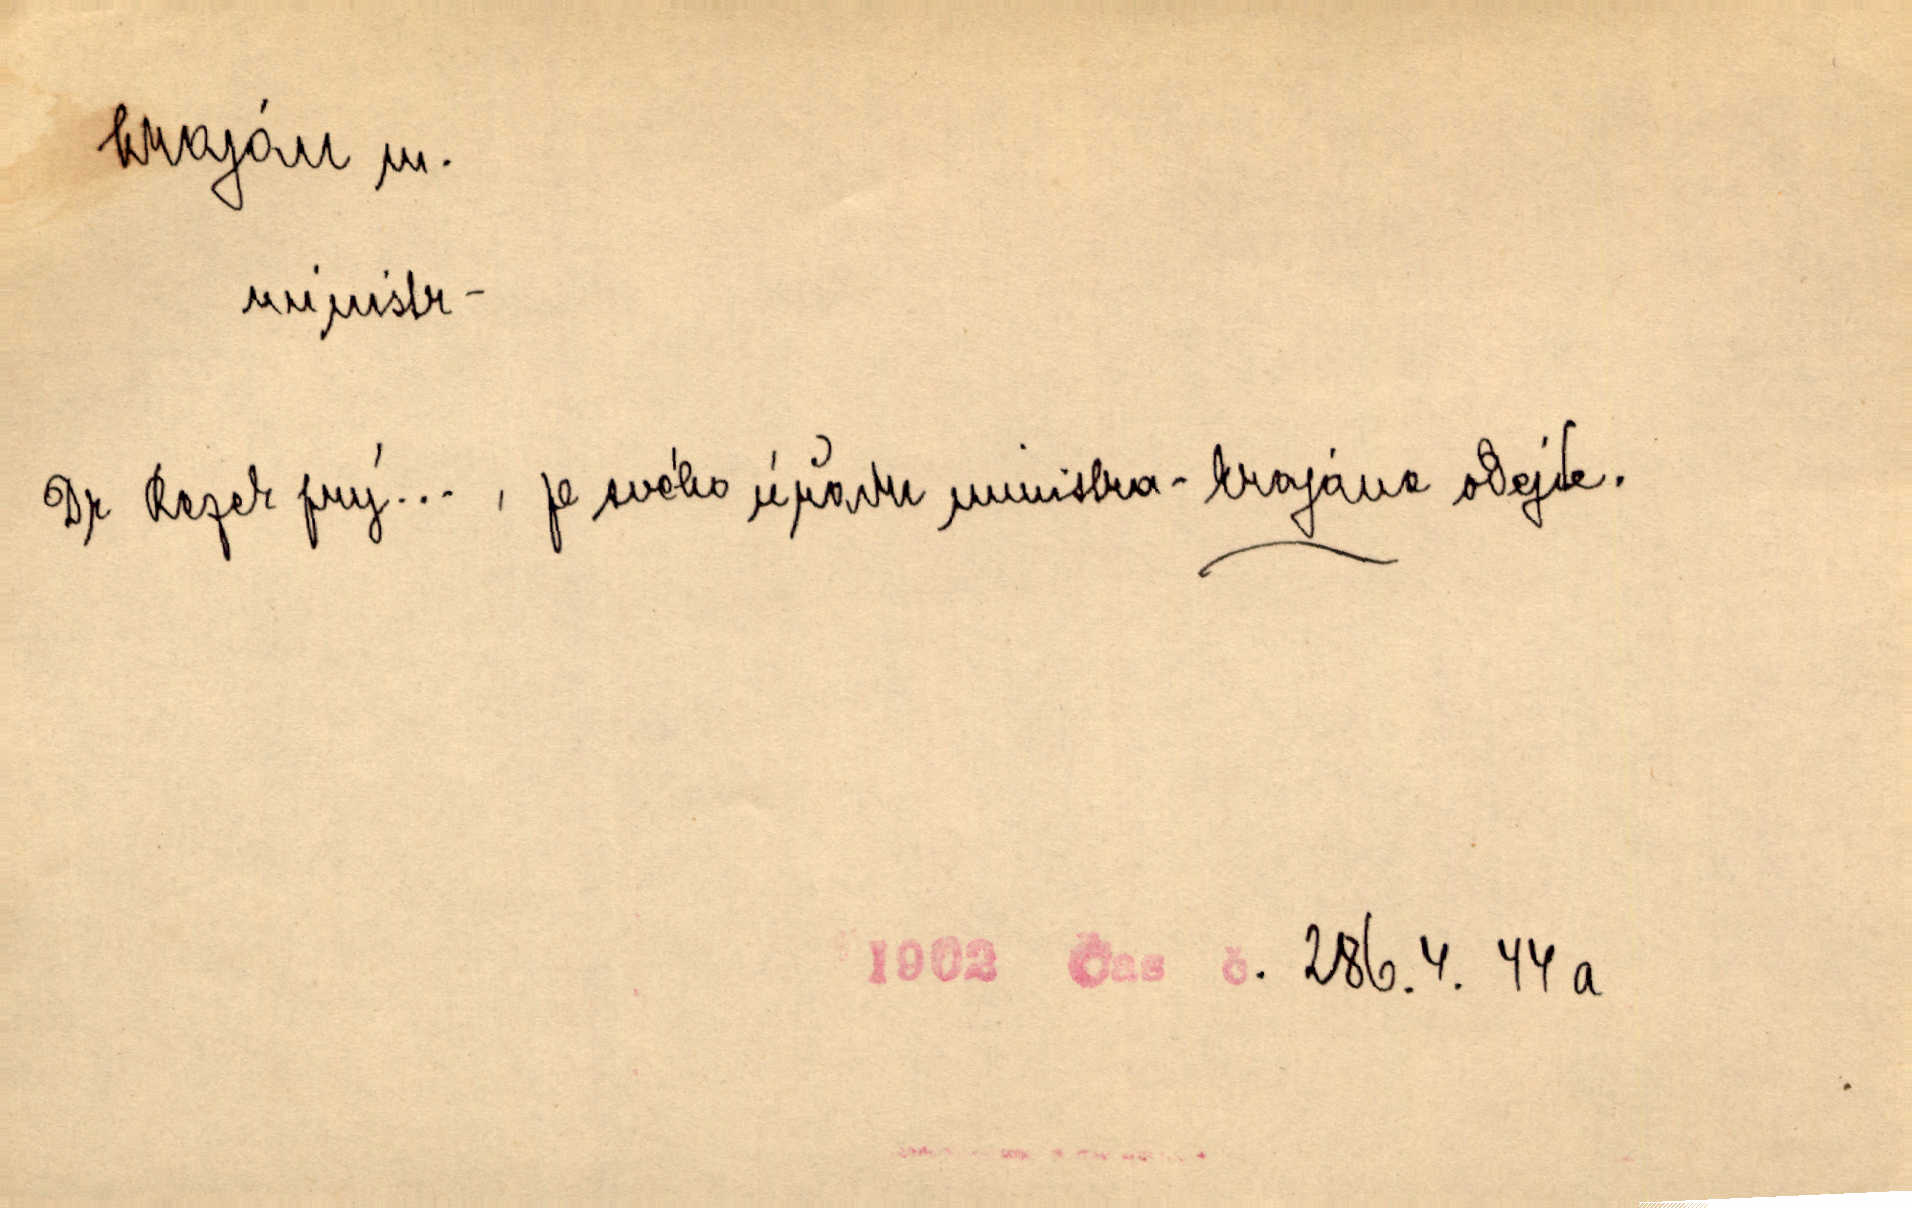 krajan m.
ministr-
Dr Rezek prý..., že svého úřadu ministra-krajana odejde.
1902 Čas č. 286.4. 44a